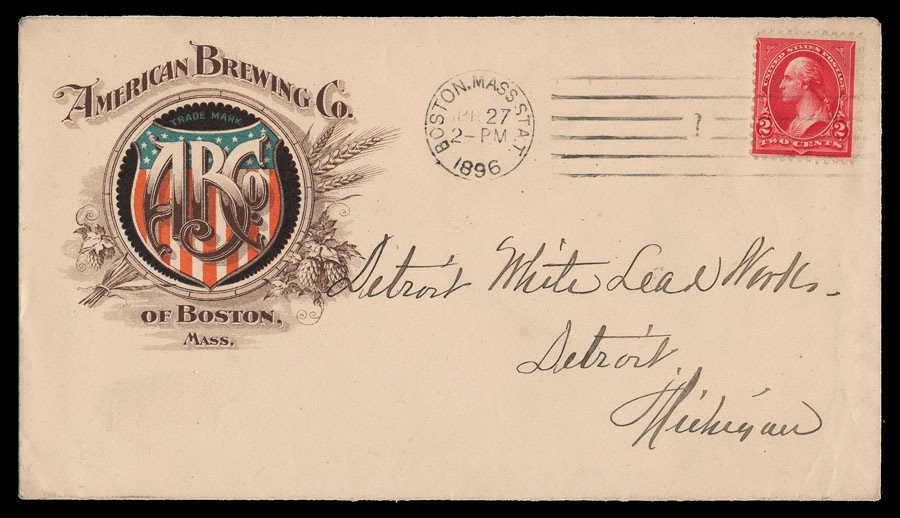 American Brewing Co.
TRADE MARK
ABCo.
OF BOSTON,
MASS.
BOSTON, MASS. STA.
APR 27
2-PM
1896
1
UNITED STATES POSTAGE
2 2
TWO CENTS
Detroit White Lead Works.
Detroit
Michigan